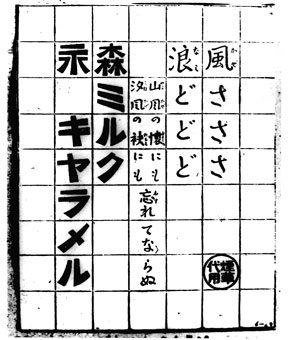 風さささ
浪どどど
山風の懐にも
汐風の袂にも
忘れてならぬ
森ミルク
永キヤラメル
煙草
代用